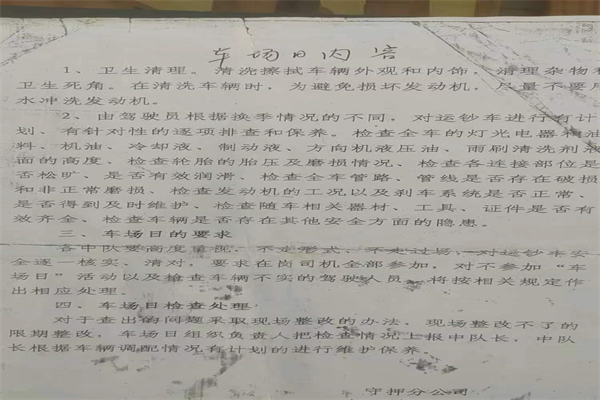 车场日内容
1、卫生清理。清洗擦拭车辆外观和内饰，清理杂物和
卫生死角。在清洗车辆时，为避免损坏发动机，尽量不要用
水冲洗发动机。
2、由驾驶员根据换季情况的不同，对运钞车进行有计
划、有针对性的逐项排查和保养。检查全车的灯光电器和油
料、机油、冷却液、制动液、方向机液压油、雨刷清洗剂液
面的高度、检查轮胎的胎压及磨损情况、检查各连接部位是
否松旷、是否有效润滑、检查全车管路、管线是否存在破损
和非正常磨损、检查发动机的工况以及刹车系统是否正常、
是否得到及时维护、检查随车相关器材、工具、证件是否有
效齐全、检查车辆是否存在其他安全方面的隐患。
三、车场日的要求
各中队要高度重视、不走形式、不走过场，对运钞车安
全逐一核实、清对，要求在岗司机全部参加，对不参加“车
场日”活动以及检查车辆不实的驾驶人员，将按相关规定作
出相应处理。
四、车场日检查处理
对于查出的问题采取现场整改的办法，现场整改不了的
限期整改，车场日组织负责人把检查情况上报中队长，中队
长根据车辆调配情况有计划的进行维护保养。
守押分公司